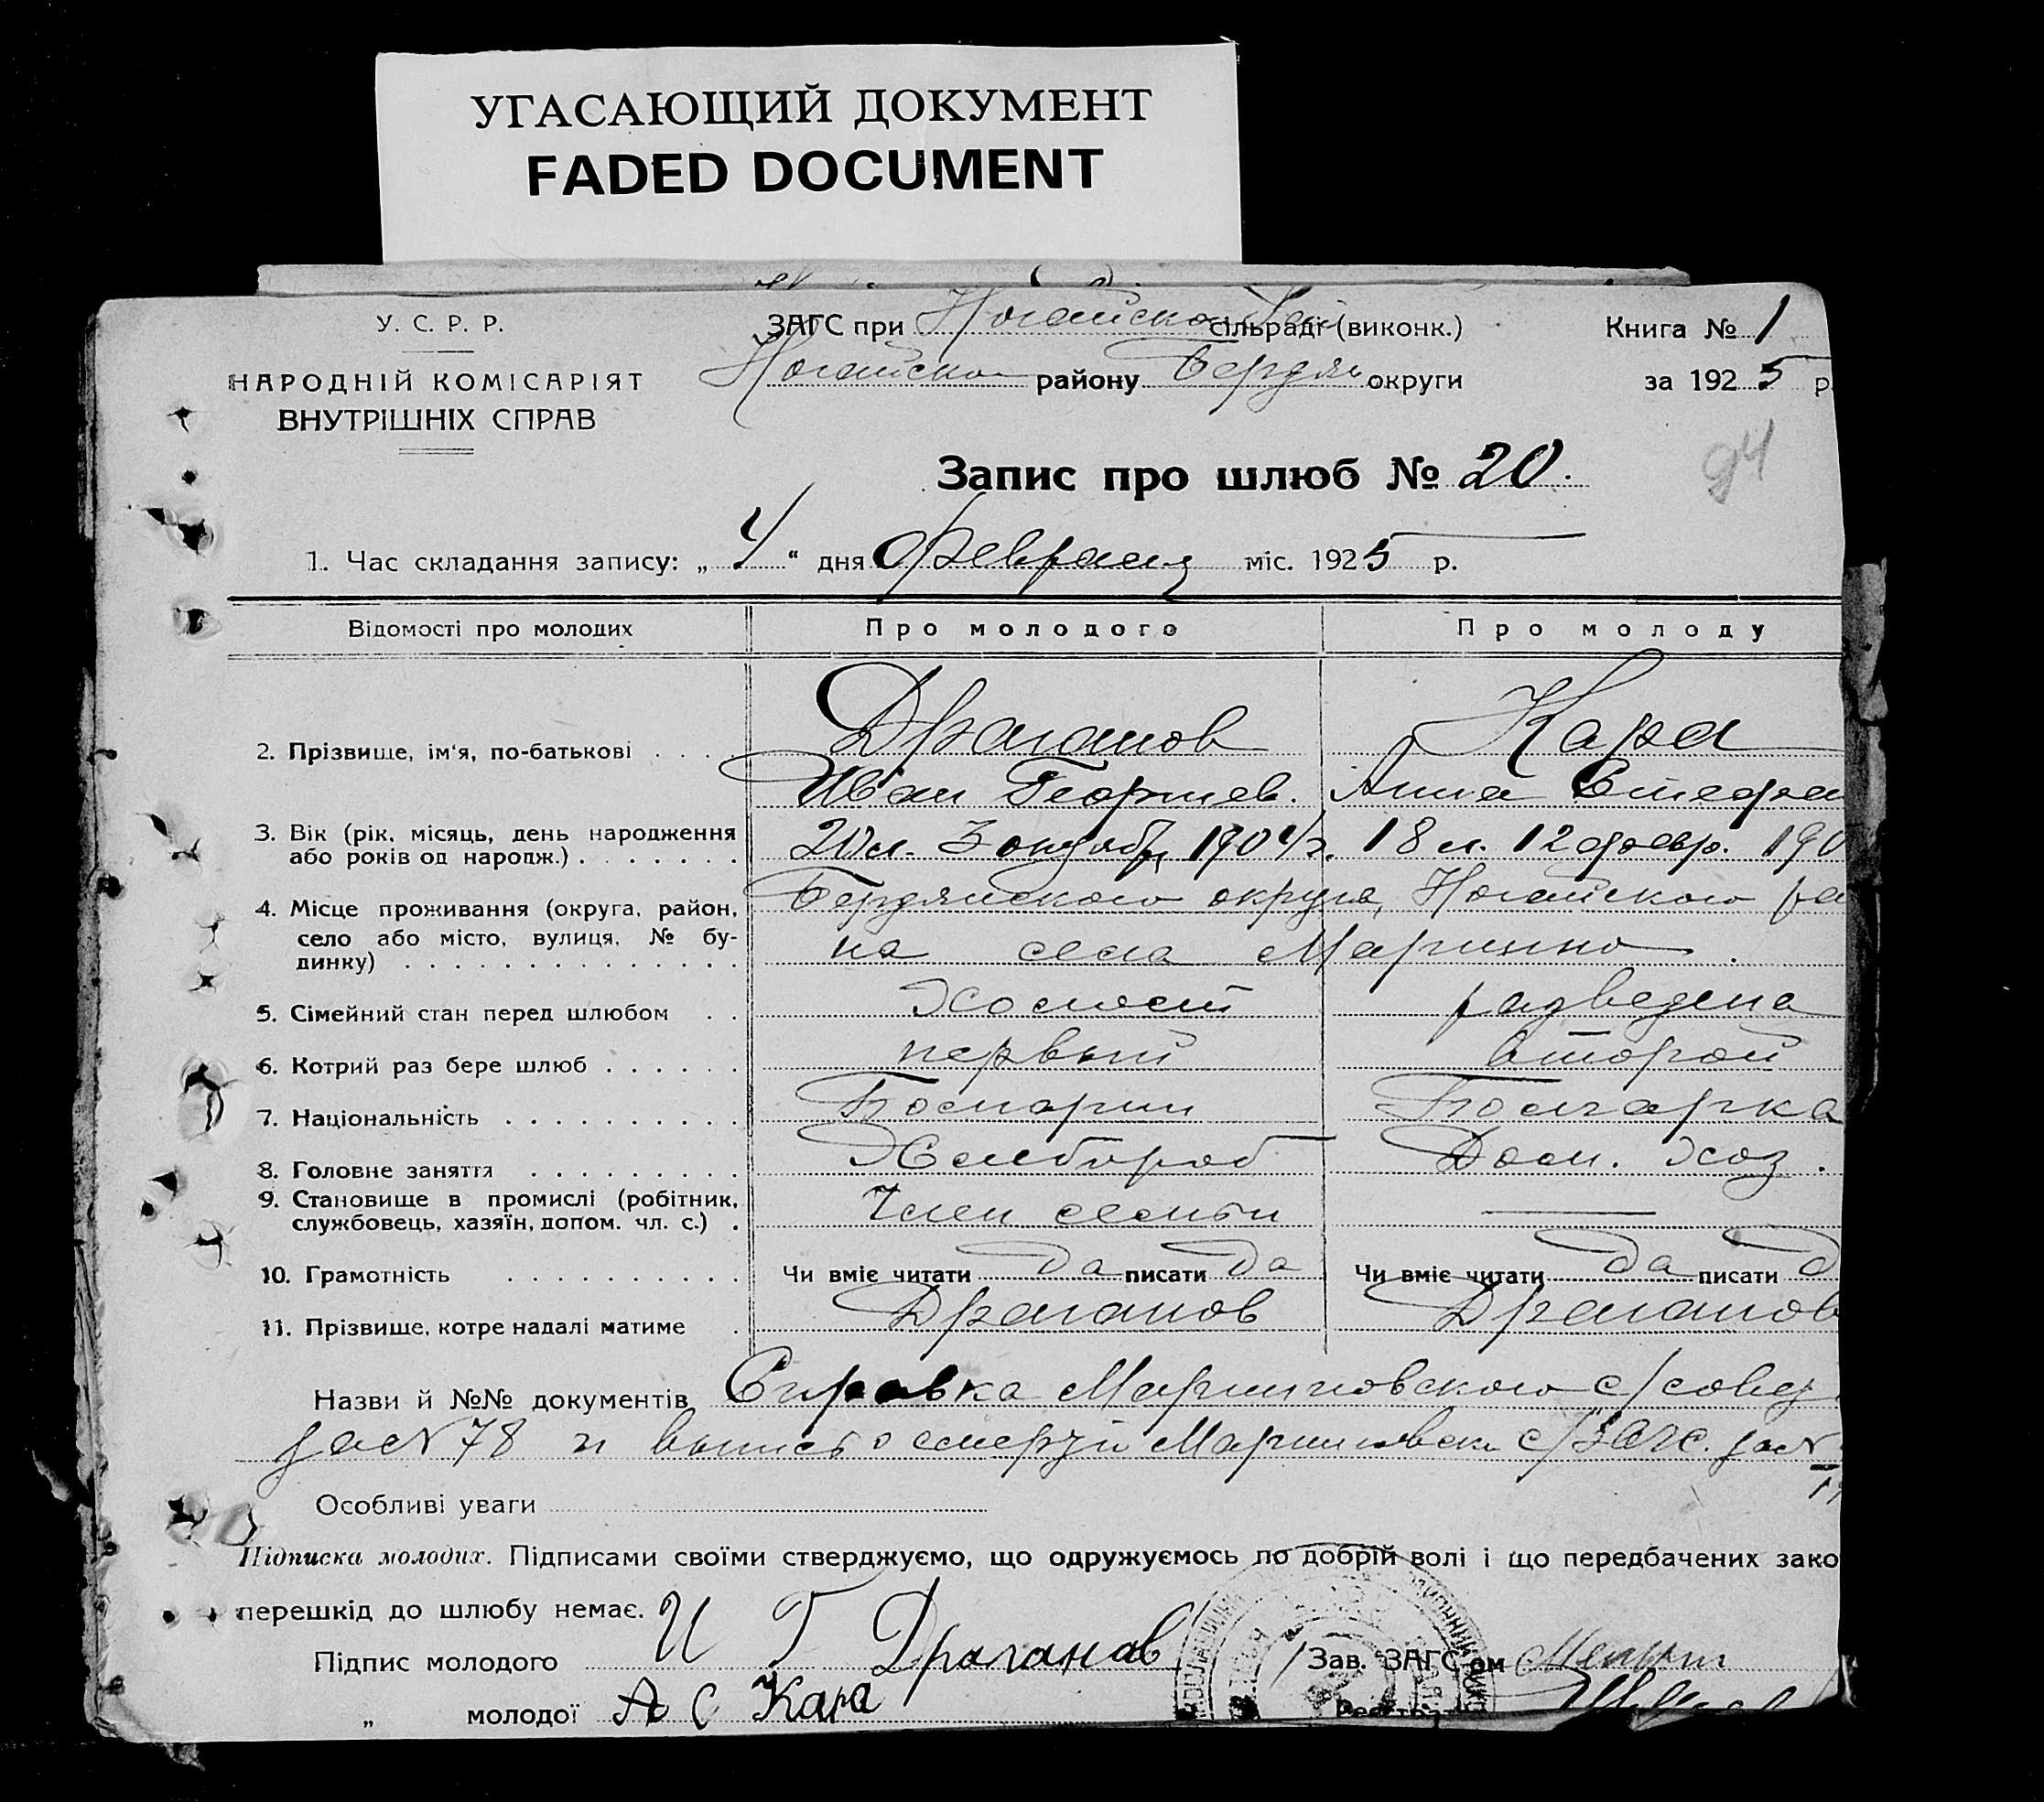 УГАСАЮЩИЙ ДОКУМЕНТ
FADED DOCUMENT
У. С. Р. Р.
НАРОДНІЙ КОМІСАРІЯТ
ВНУТРІШНІХ СПРАВ
ЗАГС при Ногайском сільраді (виконк.)
Ногайско району Бердян округи
Книга № 1
за 1925 р.
94
Запис про шлюб № 20.
1. Час складання запису: „ 4 “ дня февраля міс. 1925 р.
Відомості про молодих Про молодого Про молоду
2. Прізвище, ім'я, по-батькові Драганов Кара
Иван Георгиев. Анна Стефа
3. Вік (рік, місяць, день народження 20 л. 3 октября 1904 г. 18 л. 12 февр. 190
або років од народж.)
4. Місце проживання (округа, район, Бердянского округа, Ногайского ра
село або місто, вулиця, № бу- на села Марино.
динку)
5. Сімейний стан перед шлюбом Холост разведена
6. Котрий раз бере шлюб первый второй
7. Національність Болгарин Болгарка
8. Головне заняття Хлебороб Дом. хоз.
9. Становище в промислі (робітник, Член семьи
службовець, хазяїн, допом. чл. с.)
10. Грамотність Чи вміє читати да писати да Чи вміє читати да писати д
11. Прізвище, котре надалі матиме Драганов Драганов
Назви й №№ документів Справка Мариновского с/совет
за № 78 и выпись о смерти Мариновск с/ЗАГС. за №
Особливі уваги
Підписка молодих. Підписами своїми стверджуємо, що одружуємось по добрій волі і що передбачених зако
перешкід до шлюбу немає.
Підпис молодого И Г Драганов Зав. ЗАГС'ом
„ молодої А С Кара Реєстрат